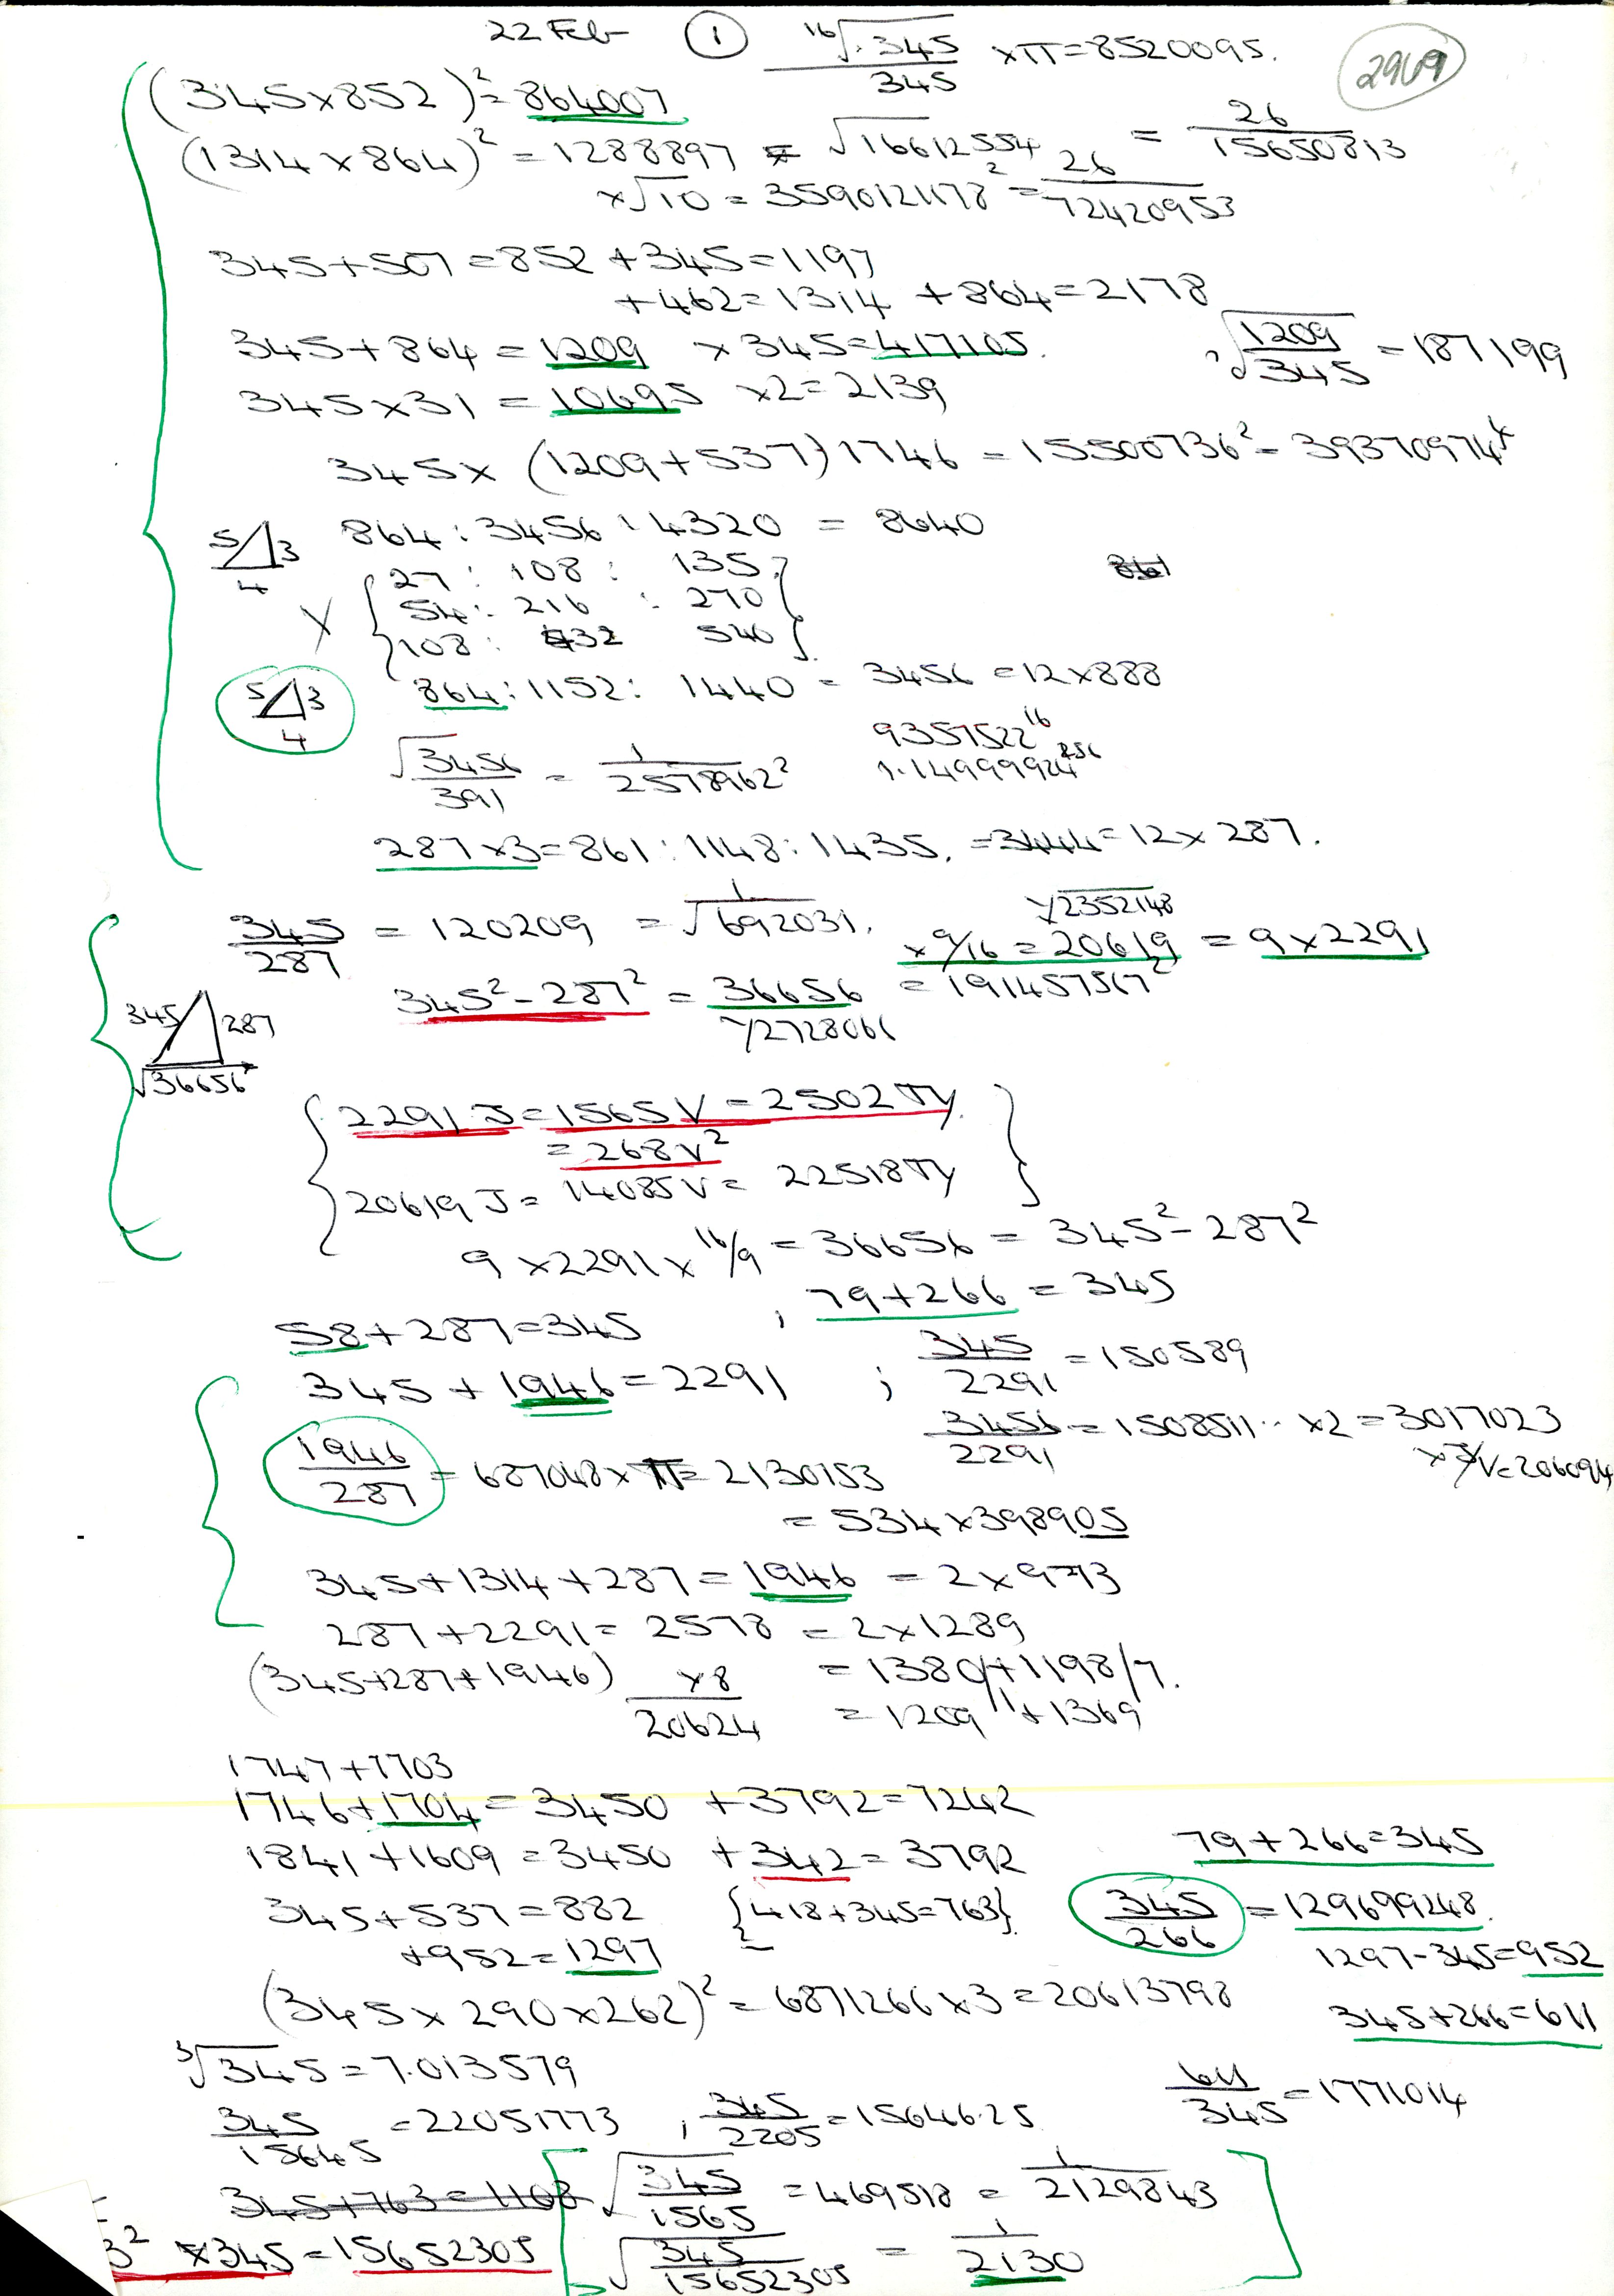 22 Feb ① ¹⁶√.345/345 ×π=8520095. 2969
(345×852)²=864007
(1314×864)²=1288897 = √16612554 = 26/15650813
×√10 = 3590121178² = 26/72420953
345+507=852+345=1197
+462=1314 +864=2178
345+864=1209 ×345=417105. ²√1209/345 = 187199
345×31=10695 ×2=2139
345×(1209+537)1746 = 15500736² = 393709744
5 3 4 864:3456:4320 = 8640
27: 108: 135
54: 216: 270
×
108: 432 540
5 3 4 864:1152: 1440 = 3456 =12×888
9357522¹⁶
√3456/391 = 1/2578962² 1.14999924²⁵⁶
287×3=861:1148:1435. =3444=12×287.
345/287 = 120209 = 1/√692031. √2352148
×9/16 = 20619 = 9×2291
345²-287² = 36656 = 191457567²
345 287 √36656 √2728061
2291J=1565V=2502πy.
=268V²
20619J=14085V=22518πy
9×2291×16/9 = 36656 = 345²-287²
58+287=345 ; 79+266=345
345+1946=2291 ; 345/2291 =150589
3456/2291 =1508511.. ×2=3017023
1946/287 = 687048×π=2130153
=534×398905
345+1314+287=1946 = 2×973
287+2291=2578 = 2×1289
(345+287+1946) ×8 = 1380/+1198/7.
20624 =1209 +1369
1747+1703
1746+1704=3450 +3792=7242
1841+1609=3450 +342=3792 79+266=345
345+537=882 {418+345=763} 345/266 =129699248.
+952=1297 1297-345=952
(345×290×262)²=6871266×3=20613798 345+266=611
³√345=7.013579
345/15645 =22051773 ; 345/2205 =15646.25 611/345 =1771014
345+763=1108 √345/1565 =469518 = 1/2129843
3² ×345=15652305 √345/15652305 = 1/2130